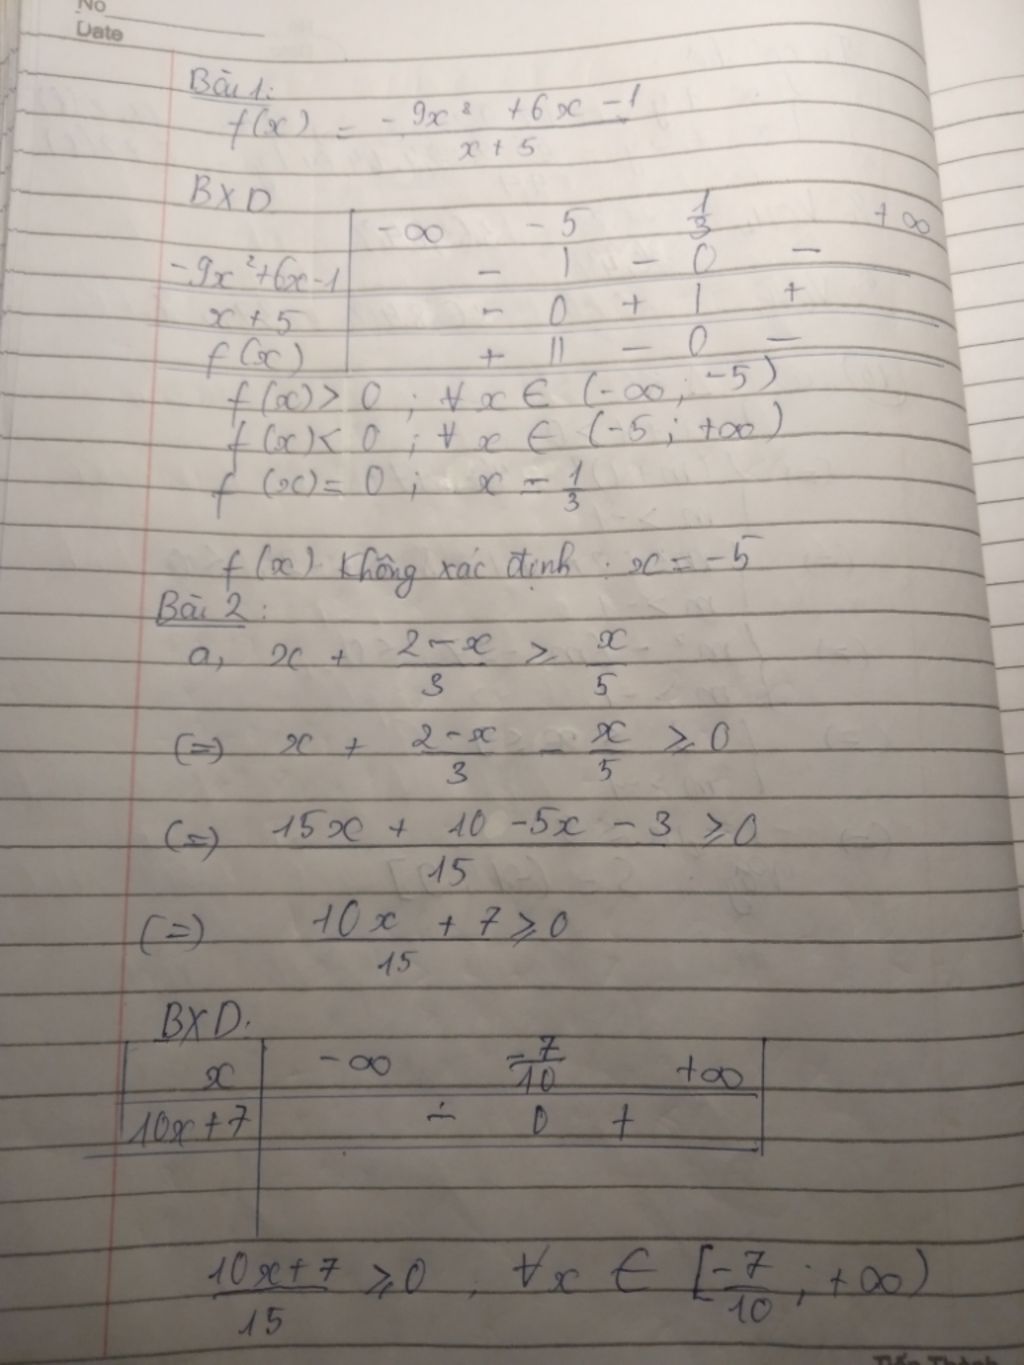 No
Date
Bài 1:
f(x) = (-9x² + 6x - 1) / (x + 5)
BXD
-∞ -5 1/3 +∞
-9x²+6x-1 - | - 0 -
x+5 - 0 + | +
f(x) + || - 0 -
f(x) > 0 ; ∀x ∈ (-∞; -5)
f(x) < 0 ; ∀x ∈ (-5; +∞)
f(x) = 0 ; x = 1/3
f(x) không xác định : x = -5
Bài 2:
a, x + (2-x)/3 ≥ x/5
(=) x + (2-x)/3 - x/5 ≥ 0
(=) (15x + 10 - 5x - 3)/15 ≥ 0
(=) (10x + 7)/15 ≥ 0
BXD.
x -∞ -7/10 +∞
10x+7 - 0 +
(10x+7)/15 ≥ 0 , ∀x ∈ [-7/10 ; +∞)